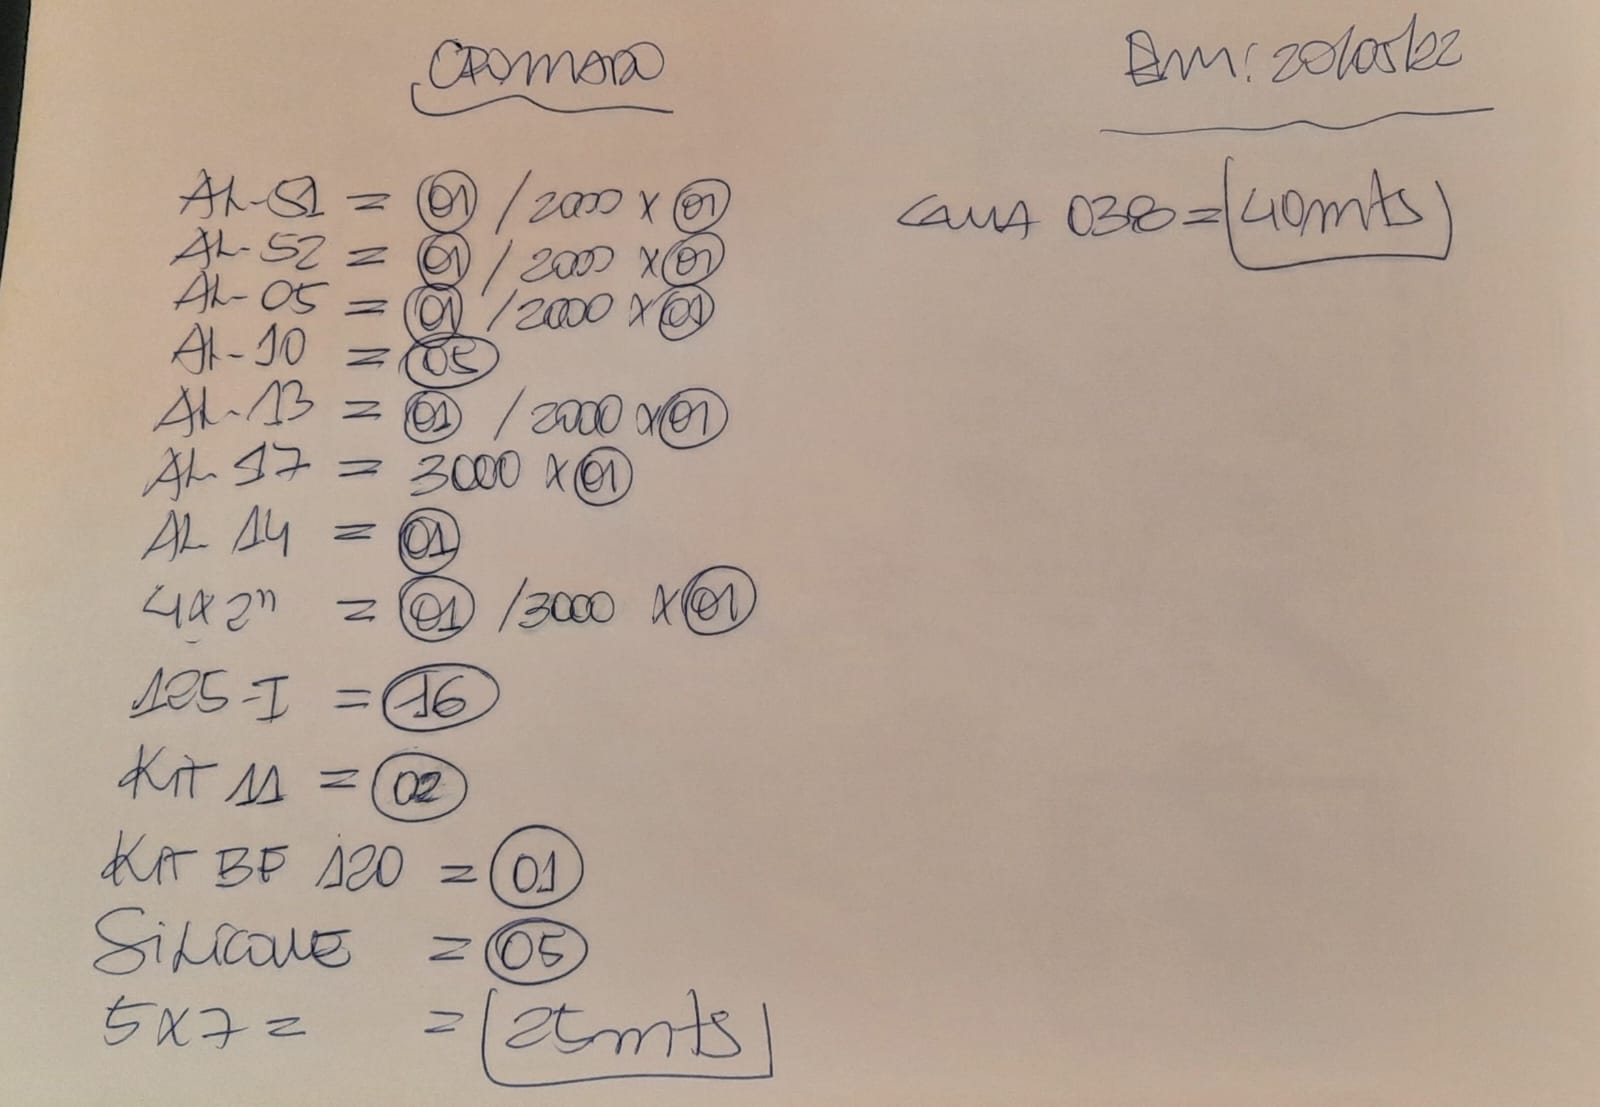 CROMADO
Em: 20/05/22
AL-51 = 01 / 2000 x 01
AL-52 = 01 / 2000 x 01
AL-05 = 01 / 2000 x 01
AL-10 = 05
AL-13 = 01 / 2000 x 01
AL 17 = 3000 x 01
AL 14 = 01
4x2" = 01 / 3000 x 01
125-I = 16
KIT 11 = 02
KIT BF 120 = 01
SiLiCONE = 05
5x7 = = 25mts
038 = 40mts